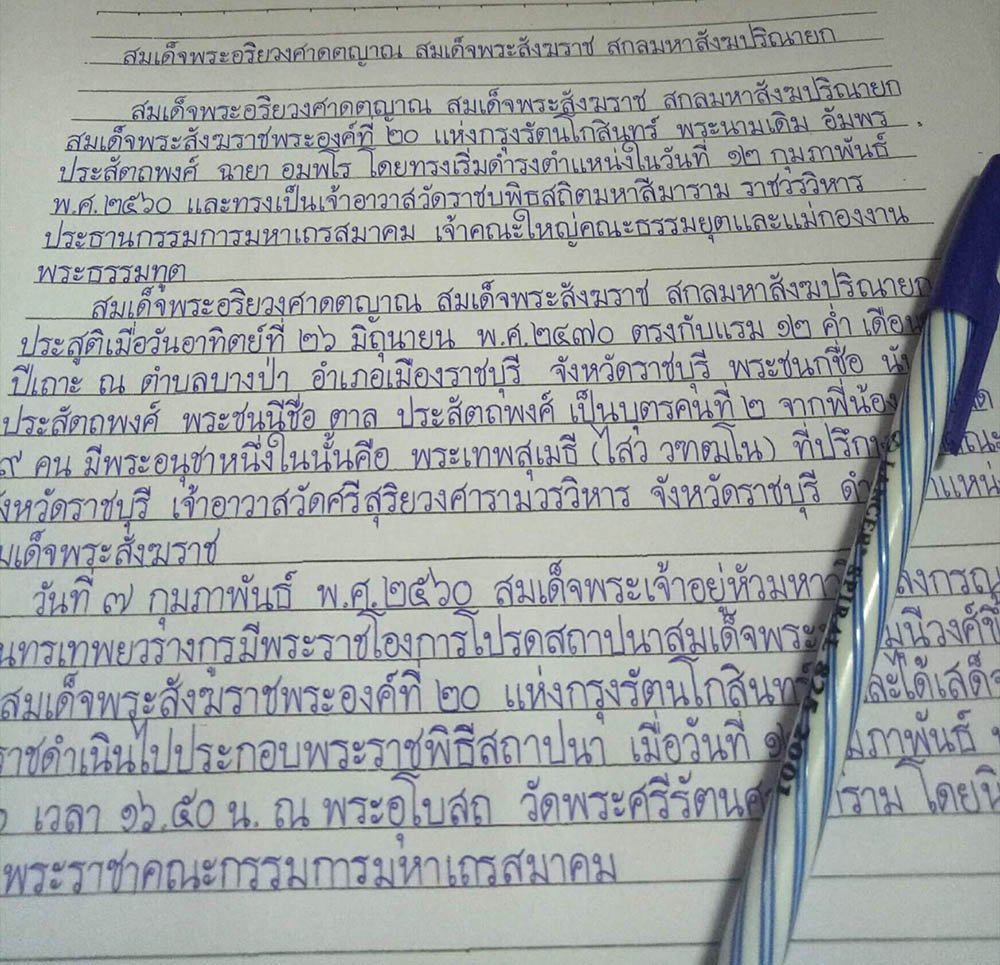 สมเด็จพระอริยวงศาคตญาณ สมเด็จพระสังฆราช สกลมหาสังฆปริณายก
สมเด็จพระอริยวงศาคตญาณ สมเด็จพระสังฆราช สกลมหาสังฆปริณายก
สมเด็จพระสังฆราชพระองค์ที่ ๒๐ แห่งกรุงรัตนโกสินทร์ พระนามเดิม อัมพร
ประสัตถพงศ์ ฉายา อมฺพโร โดยทรงเริ่มดำรงตำแหน่งในวันที่ ๑๒ กุมภาพันธ์
พ.ศ.๒๕๖๐ และทรงเป็นเจ้าอาวาสวัดราชบพิธสถิตมหาสีมาราม ราชวรวิหาร
ประธานกรรมการมหาเถรสมาคม เจ้าคณะใหญ่คณะธรรมยุตและแม่กองงาน
พระธรรมทูต
สมเด็จพระอริยวงศาคตญาณ สมเด็จพระสังฆราช สกลมหาสังฆปริณายก
ประสูติเมื่อวันอาทิตย์ที่ ๒๖ มิถุนายน พ.ศ.๒๔๗๐ ตรงกับแรม ๑๒ ค่ำ เดือน
ปีเถาะ ณ ตำบลบางป่า อำเภอเมืองราชบุรี จังหวัดราชบุรี พระชนกชื่อ นั
ประสัตถพงศ์ พระชนนีชื่อ ตาล ประสัตถพงศ์ เป็นบุตรคนที่ ๒ จากพี่น้อง
๙ คน มีพระอนุชาหนึ่งในนั้นคือ พระเทพสุเมธี (ไสว วฑฺฒโน) ที่ปรึก
ังหวัดราชบุรี เจ้าอาวาสวัดศรีสุริยวงศารามวรวิหาร จังหวัดราชบุรี ดำ แหน่
มเด็จพระสังฆราช
วันที่ ๗ กุมภาพันธ์ พ.ศ.๒๕๖๐ สมเด็จพระเจ้าอยู่หัวมหา ลงกรณ
นทรเทพยวรางกูรมีพระราชโองการโปรดสถาปนาสมเด็จพระ มุนีวงศ์ขึ้
สมเด็จพระสังฆราชพระองค์ที่ ๒๐ แห่งกรุงรัตนโกสินทร ละได้เสด็จ
ราชดำเนินไปประกอบพระราชพิธีสถาปนา เมื่อวันที่ ๑ มภาพันธ์
เวลา ๑๖.๕๐ น. ณ พระอุโบสถ วัดพระศรีรัตนศ าราม โดยนิ
พระราชาคณะกรรมการมหาเถรสมาคม
LANCER SPIRAL 825 2001